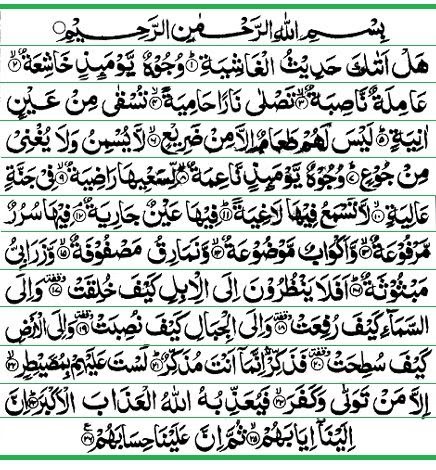 بِسْمِ اللهِ الرَّحْمٰنِ الرَّحِيْمِ
هَلْ اَتٰىكَ حَدِيْثُ الْغَاشِيَةِ ۱ وُجُوْهٌ يَّوْمَئِذٍ خَاشِعَةٌ ۲
عَامِلَةٌ نَّاصِبَةٌ ۳ تَصْلٰى نَارًا حَامِيَةً ۴ تُسْقٰى مِنْ عَيْنٍ
اٰنِيَةٍ ۵ لَيْسَ لَهُمْ طَعَامٌ اِلَّا مِنْ ضَرِيْعٍ ۶ لَّا يُسْمِنُ وَلَا يُغْنِيْ
مِنْ جُوْعٍ ۷ وُجُوْهٌ يَّوْمَئِذٍ نَّاعِمَةٌ ۸ لِّسَعْيِهَا رَاضِيَةٌ ۹ فِيْ جَنَّةٍ
عَالِيَةٍ ۱۰ لَّا تَسْمَعُ فِيْهَا لَاغِيَةً ۱۱ فِيْهَا عَيْنٌ جَارِيَةٌ ۱۲ فِيْهَا سُرُرٌ
مَّرْفُوْعَةٌ ۱۳ وَّاَكْوَابٌ مَّوْضُوْعَةٌ ۱۴ وَّنَمَارِقُ مَصْفُوْفَةٌ ۱۵ وَّزَرَابِيُّ
مَبْثُوْثَةٌ ۱۶ اَفَلَا يَنْظُرُوْنَ اِلَى الْاِبِلِ كَيْفَ خُلِقَتْ ۱۷ وَاِلَى
السَّمَآءِ كَيْفَ رُفِعَتْ ۱۸ وَاِلَى الْجِبَالِ كَيْفَ نُصِبَتْ ۱۹ وَاِلَى الْاَرْضِ
كَيْفَ سُطِحَتْ ۲۰ فَذَكِّرْ اِنَّمَا اَنْتَ مُذَكِّرٌ ۲۱ لَسْتَ عَلَيْهِمْ بِمُصَيْطِرٍ ۲۲
اِلَّا مَنْ تَوَلّٰى وَكَفَرَ ۲۳ فَيُعَذِّبُهُ اللهُ الْعَذَابَ الْاَكْبَرَ ۲۴ اِنَّ
اِلَيْنَا اِيَابَهُمْ ۲۵ ثُمَّ اِنَّ عَلَيْنَا حِسَابَهُمْ ۲۶